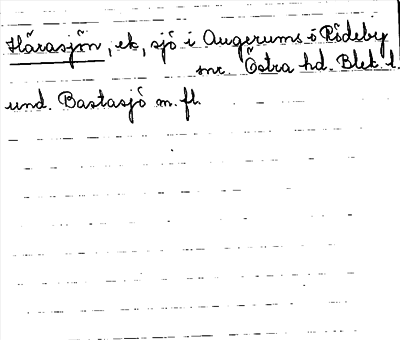 Härasjön, ek, sjö i Augerums o Rödeby
snr Östra hd. Blek. l.
und. Bastasjö m. fl.